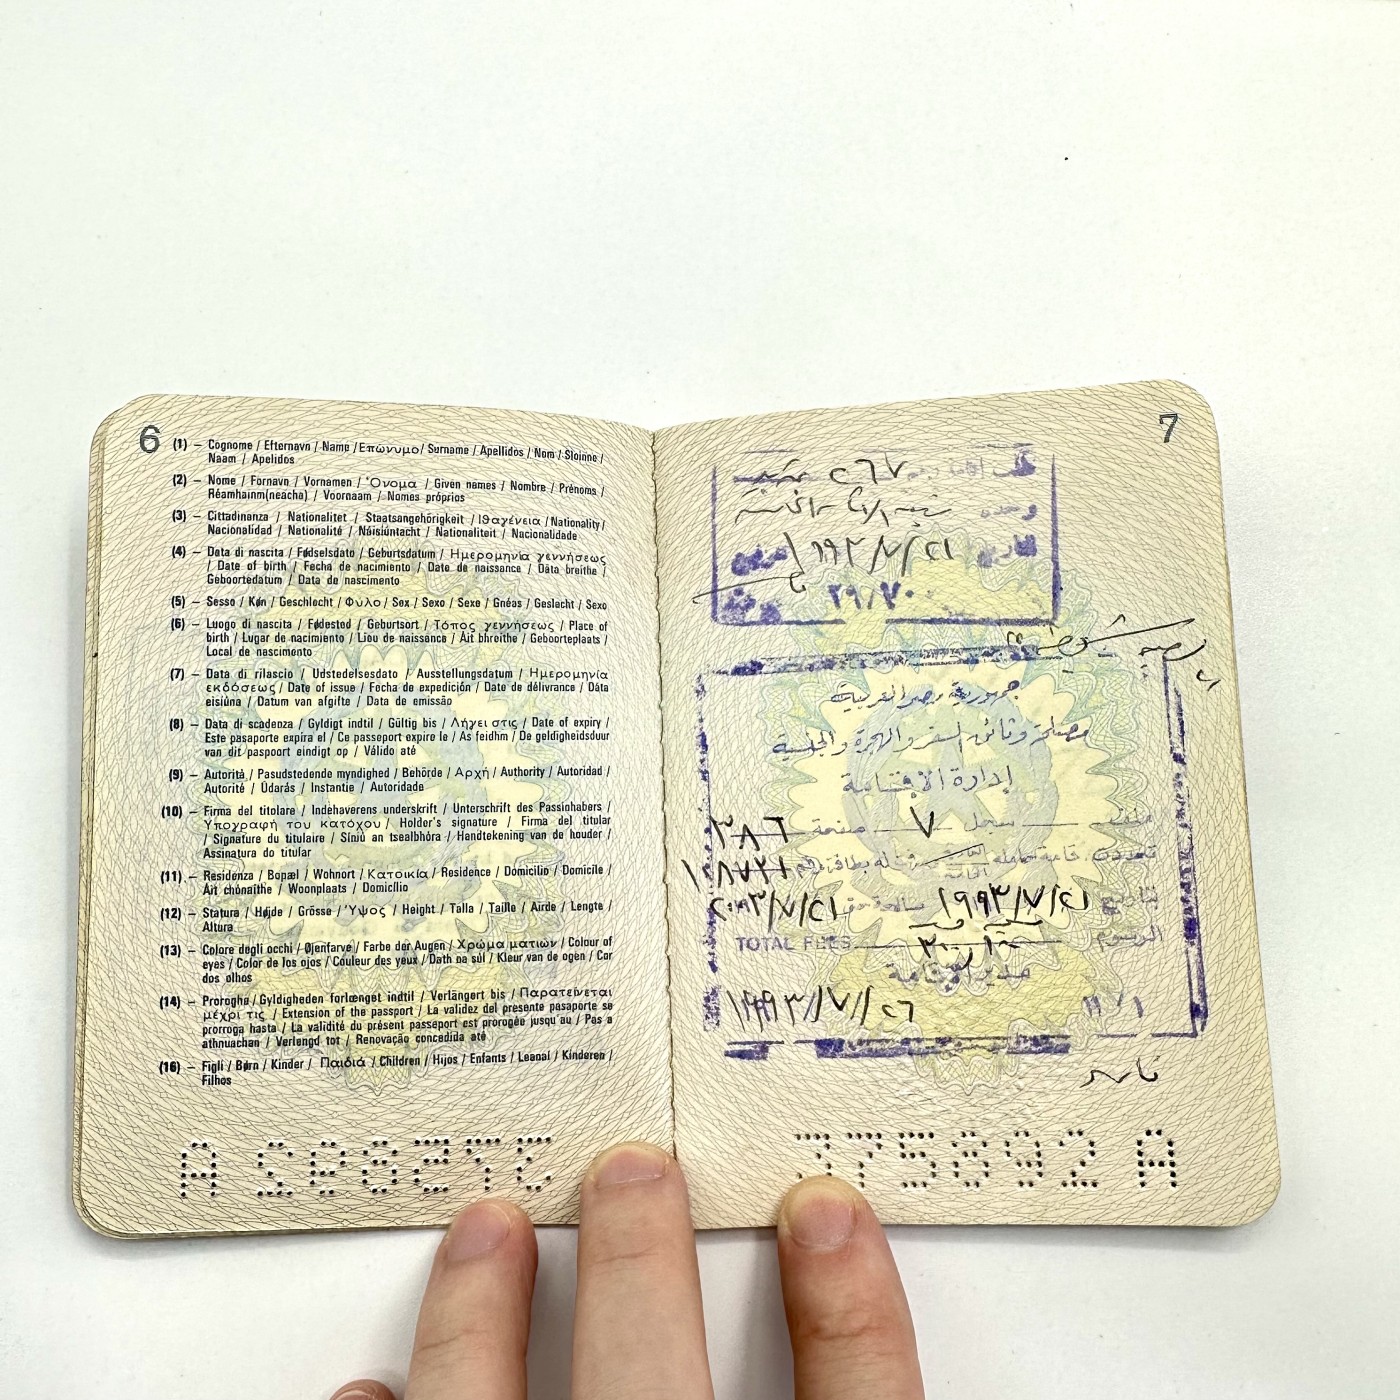 6
(1) – Cognome / Efternavn / Name / Επώνυμο / Surname / Apellidos / Nom / Sloinne /
Naam / Apelidos
(2) – Nome / Fornavn / Vornamen / Όνομα / Given names / Nombre / Prénoms /
Réamhainm(neacha) / Voornaam / Nomes próprios
(3) – Cittadinanza / Nationalitet / Staatsangehörigkeit / Ιθαγένεια / Nationality /
Nacionalidad / Nationalité / Náisiúntacht / Nationaliteit / Nacionalidade
(4) – Data di nascita / Fødselsdato / Geburtsdatum / Ημερομηνία γεννήσεως
/ Date of birth / Fecha de nacimiento / Date de naissance / Dáta breithe /
Geboortedatum / Data de nascimento
(5) – Sesso / Køn / Geschlecht / Φυλο / Sex / Sexo / Sexe / Gnéas / Geslacht / Sexo
(6) – Luogo di nascita / Fødested / Geburtsort / Τόπος γεννήσεως / Place of
birth / Lugar de nacimiento / Lieu de naissance / Áit bhreithe / Geboorteplaats /
Local de nascimento
(7) – Data di rilascio / Udstedelsesdato / Ausstellungsdatum / Ημερομηνία
εκδόσεως / Date of issue / Fecha de expedición / Date de délivrance / Dáta
eisiúna / Datum van afgifte / Data de emissão
(8) – Data di scadenza / Gyldigt indtil / Gültig bis / Λήγει στις / Date of expiry /
Este pasaporte expira el / Ce passeport expire le / As feidhm / De geldigheidsduur
van dit paspoort eindigt op / Válido até
(9) – Autorità / Pasudstedende myndighed / Behörde / Αρχή / Authority / Autoridad /
Autorité / Údarás / Instantie / Autoridade
(10) – Firma del titolare / Indehaverens underskrift / Unterschrift des Passinhabers /
Υπογραφή του κατόχου / Holder's signature / Firma del titular
/ Signature du titulaire / Síniú an tsealbhóra / Handtekening van de houder /
Assinatura do titular
(11) – Residenza / Bopæl / Wohnort / Κατοικία / Residence / Domicilio / Domicile /
Áit chónaithe / Woonplaats / Domicílio
(12) – Statura / Højde / Grösse / Ύψος / Height / Talla / Taille / Airde / Lengte /
Altura
(13) – Colore degli occhi / Øjenfarve / Farbe der Augen / Χρώμα ματιών / Colour of
eyes / Color de los ojos / Couleur des yeux / Dath na súl / Kleur van de ogen / Cor
dos olhos
(14) – Proroghe / Gyldigheden forlænget indtil / Verlängert bis / Παρατείνεται
μέχρι τις / Extension of the passport / La validez del presente pasaporte se
prorroga hasta / La validité du présent passeport est prorogée jusqu'au / Pas a
athnuachan / Verlengd tot / Renovação concedida até
(16) – Figli / Børn / Kinder / Παιδιά / Children / Hijos / Enfants / Leanaí / Kinderen /
Filhos
7
٢٦٧
١٩٩٣/٧/٢١
٢٩/٧٠
جمهورية مصر العربية
مصلحة وثائق السفر والهجرة والجنسية
إدارة الإقامة
سجل ٧ صفحة ٣٨٦
بتاريخ ١٩٩٣/٧/٢١ صالحة حتى
الرسوم TOTAL FEES
مدير الإقامة
١٩٩٣/٧/٢٦
375892 A